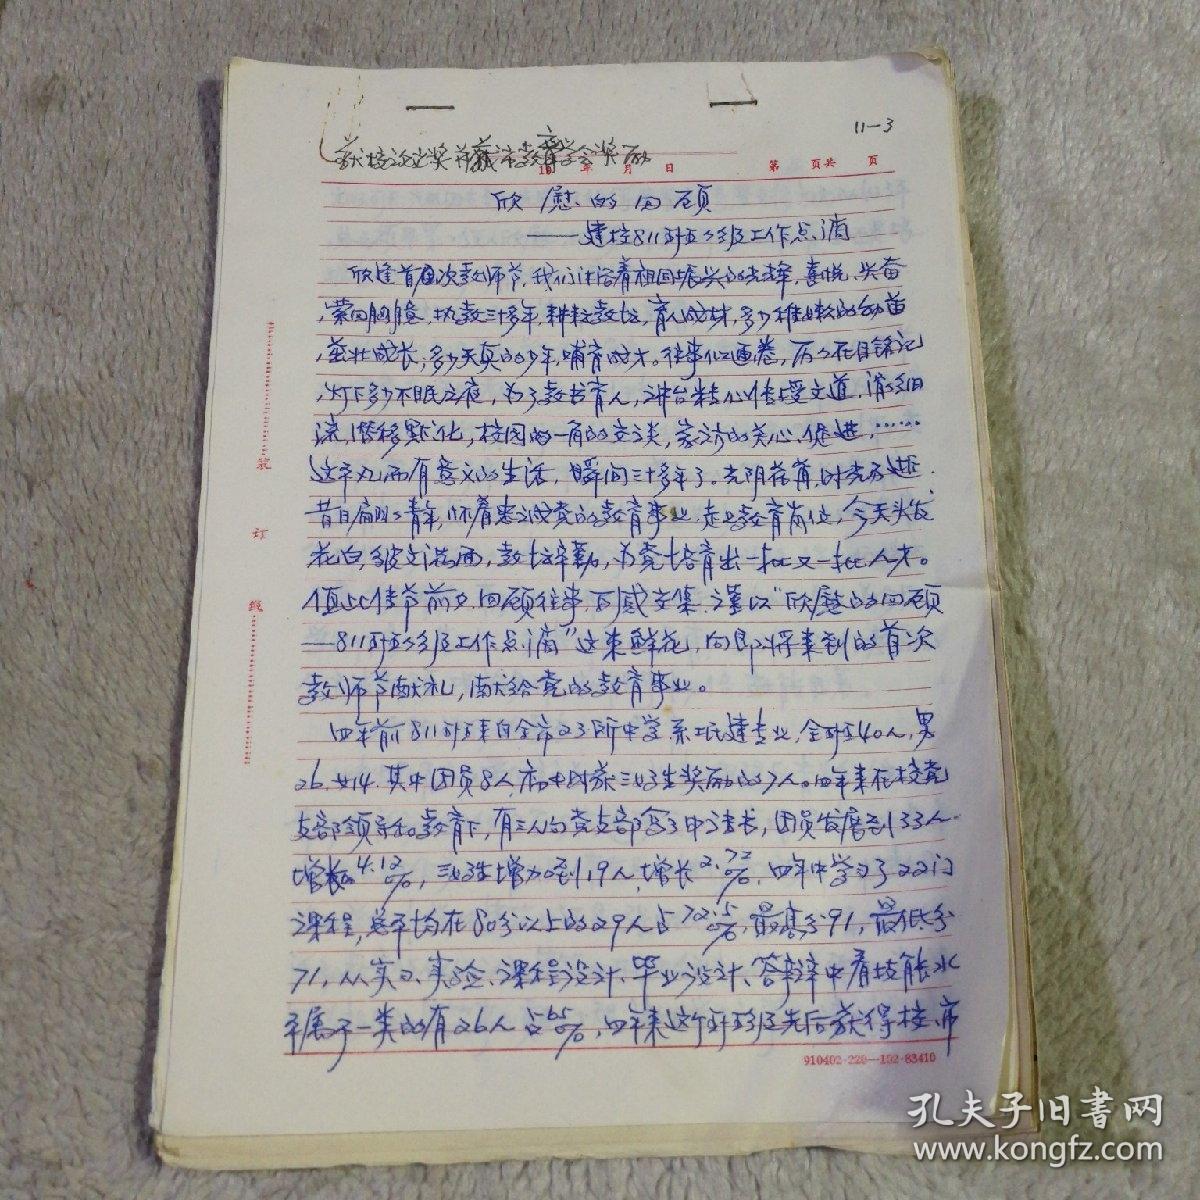 11-3
获校论文奖并获市教育学会奖励
19 年 月 日 第 页共 页
欣慰的回顾
——建校811班班级工作点滴
欣逢首届次教师节,我们沐浴着祖国振兴的光辉,喜悦、兴奋
,萦回胸臆,执教三十多年,耕耘教坛,育人成材,多少稚嫩的幼苗
,茁壮成长,多少天真的少年,哺育成才。往事似画卷,历历在目铭记
,灯下多少不眠之夜,为了教书育人,讲台精心传授文道,涓涓细
流,潜移默化,校园的一角的交谈,家访的关心、促进,……
这平凡而有意义的生活,瞬间三十多年了。光阴荏苒,时光不逝.
昔日翩翩青年,怀着忠诚党的教育事业,走上教育岗位,今天头发
花白,皱纹满面,教坛辛勤,为党培育出一批又一批人才。
值此佳节前夕,回顾往事,百感交集,谨以“欣慰的回顾
—811班班级工作点滴”这束鲜花,向即将来到的首次
教师节献礼,献给党的教育事业。
四年前811班来自全市23所中学,系工民建专业,全班40人,男
26,女14.其中团员8人,高中时获三好生奖励的7人。四年来在校党
支部领导和教育下,有三人向党支部写了申请书,团员发展到33人
增长4.12%,三好生增加到19人,增长2.72%,四年中学习了22门
课程,总平均在80分以上的29人占72.5%,最高分91,最低分
71,从实习、实验、课程设计、毕业设计、答辩中看技能水
平属于一类的有26人占65%,四年来这个班班级先后获得校、市
装
订
线
910402-220—102·83410
孔夫子旧書网
www.kongfz.com